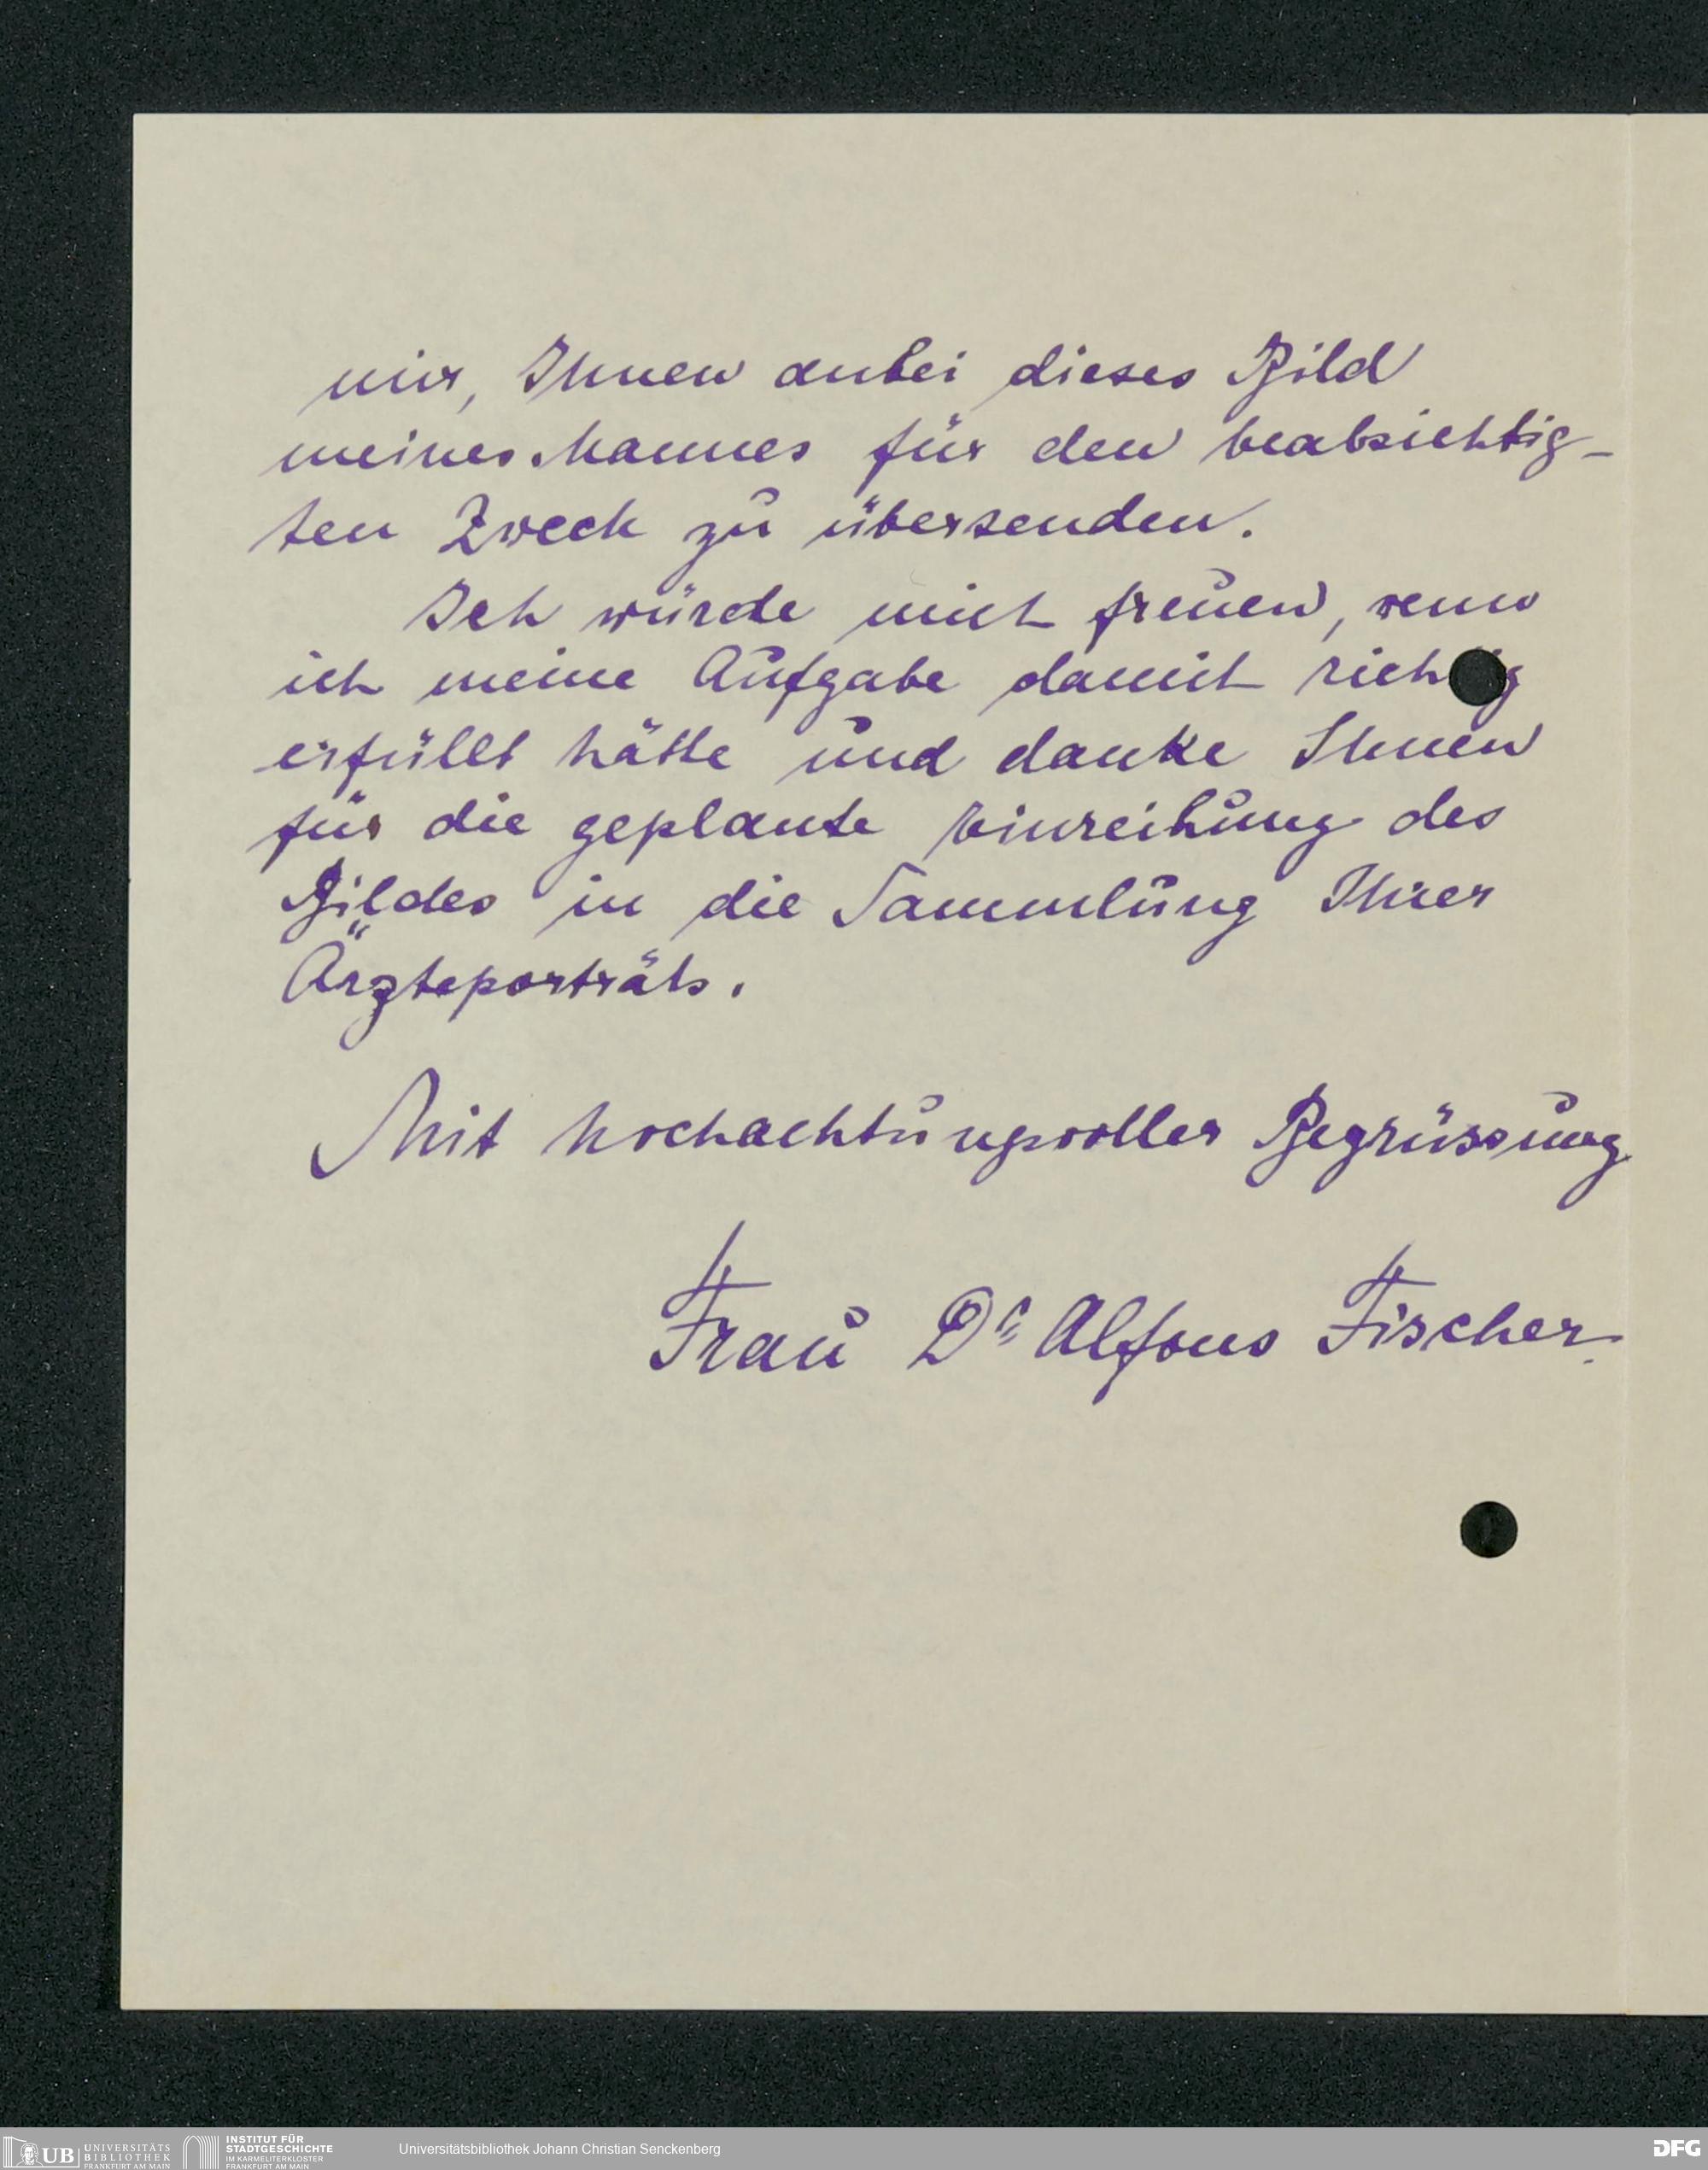 mir, Ihnen anbei dieses Bild
meines Mannes für den beabsichtig-
ten Zweck zu übersenden.
Ich würde mich freuen, wenn
ich meine Aufgabe damit richtig
erfüllt hätte und danke Ihnen
für die geplante Einreihung des
Bildes in die Sammlung Ihrer
Ärzteporträts.
Mit hochachtungsvoller Begrüssung
Frau Dr. Alfons Fischer.
UB UNIVERSITÄTS BIBLIOTHEK FRANKFURT AM MAIN
INSTITUT FÜR STADTGESCHICHTE IM KARMELITERKLOSTER FRANKFURT AM MAIN
Universitätsbibliothek Johann Christian Senckenberg
DFG